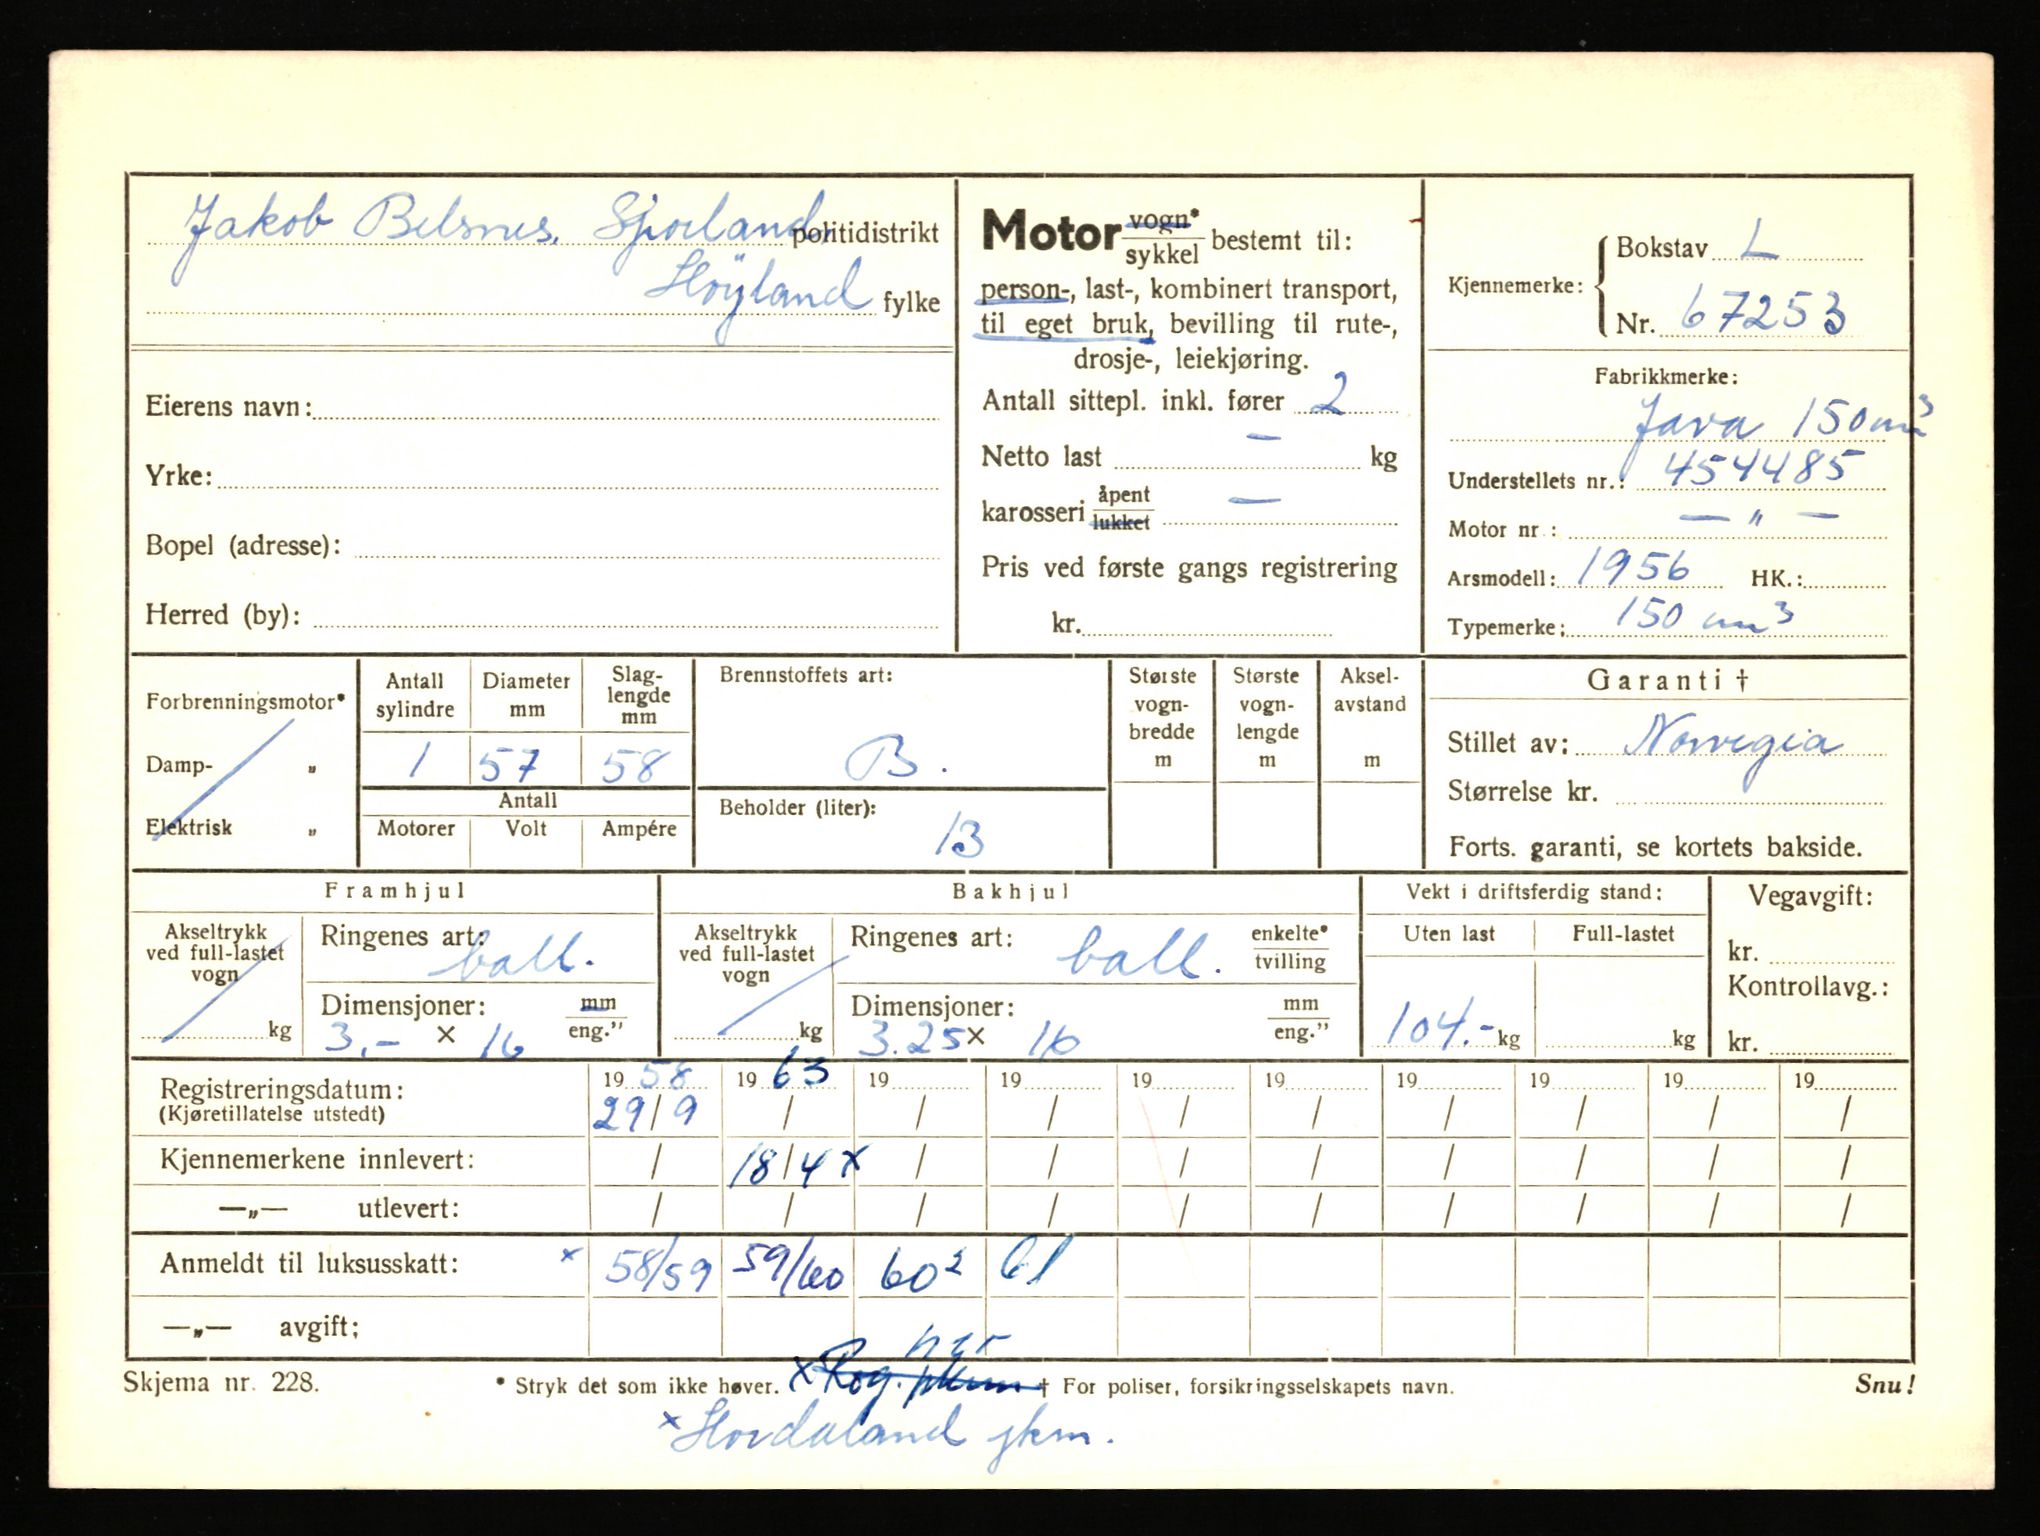 Jakob Belsnes, Sjorland, politidistrikt
Höyland fylke
Eierens navn:
Yrke:
Bopel (adresse):
Herred (by):
Motor vogn* / sykkel bestemt til:
person-, last-, kombinert transport,
til eget bruk, bevilling til rute-,
drosje-, leiekjøring.
Antall sittepl. inkl. fører 2
Netto last — kg
karosseri åpent / lukket —
Pris ved første gangs registrering
kr.
Kjennemerke: Bokstav L
Nr. 67253
Fabrikkmerke:
Java 150 cm³
Understellets nr.: 454485
Motor nr.: — " —
Arsmodell: 1956 HK.:
Typemerke: 150 cm³
Forbrenningsmotor*
Damp- „
Elektrisk „
Antall sylindre 1
Diameter mm 57
Slag-lengde mm 58
Antall
Motorer Volt Ampére
Brennstoffets art:
B.
Beholder (liter):
13
Største vogn-bredde m
Største vogn-lengde m
Aksel-avstand m
Garanti †
Stillet av: Norvegia
Størrelse kr.
Forts. garanti, se kortets bakside.
Framhjul
Akseltrykk ved full-lastet vogn kg
Ringenes art: ball.
Dimensjoner: mm / eng."
3,- × 16
Bakhjul
Akseltrykk ved full-lastet vogn kg
Ringenes art: ball. enkelte* / tvilling
Dimensjoner: mm / eng."
3.25 × 16
Vekt i driftsferdig stand:
Uten last Full-lastet
104.- kg kg
Vegavgift:
kr.
Kontrollavg.:
kr.
Registreringsdatum: 19 58 19 63 19 19 19 19 19 19 19 19
(Kjøretillatelse utstedt) 29/9 / / / / / / / / /
Kjennemerkene innlevert: / 18/4 x / / / / / / / /
—„— utlevert: / / / / / / / / / /
Anmeldt til luksusskatt: x 58/59 59/60 60² 61
—„— avgift;
Skjema nr. 228. * Stryk det som ikke høver. x Rog. † For poliser, forsikringsselskapets navn. Snu!
x Hordaland fkm.